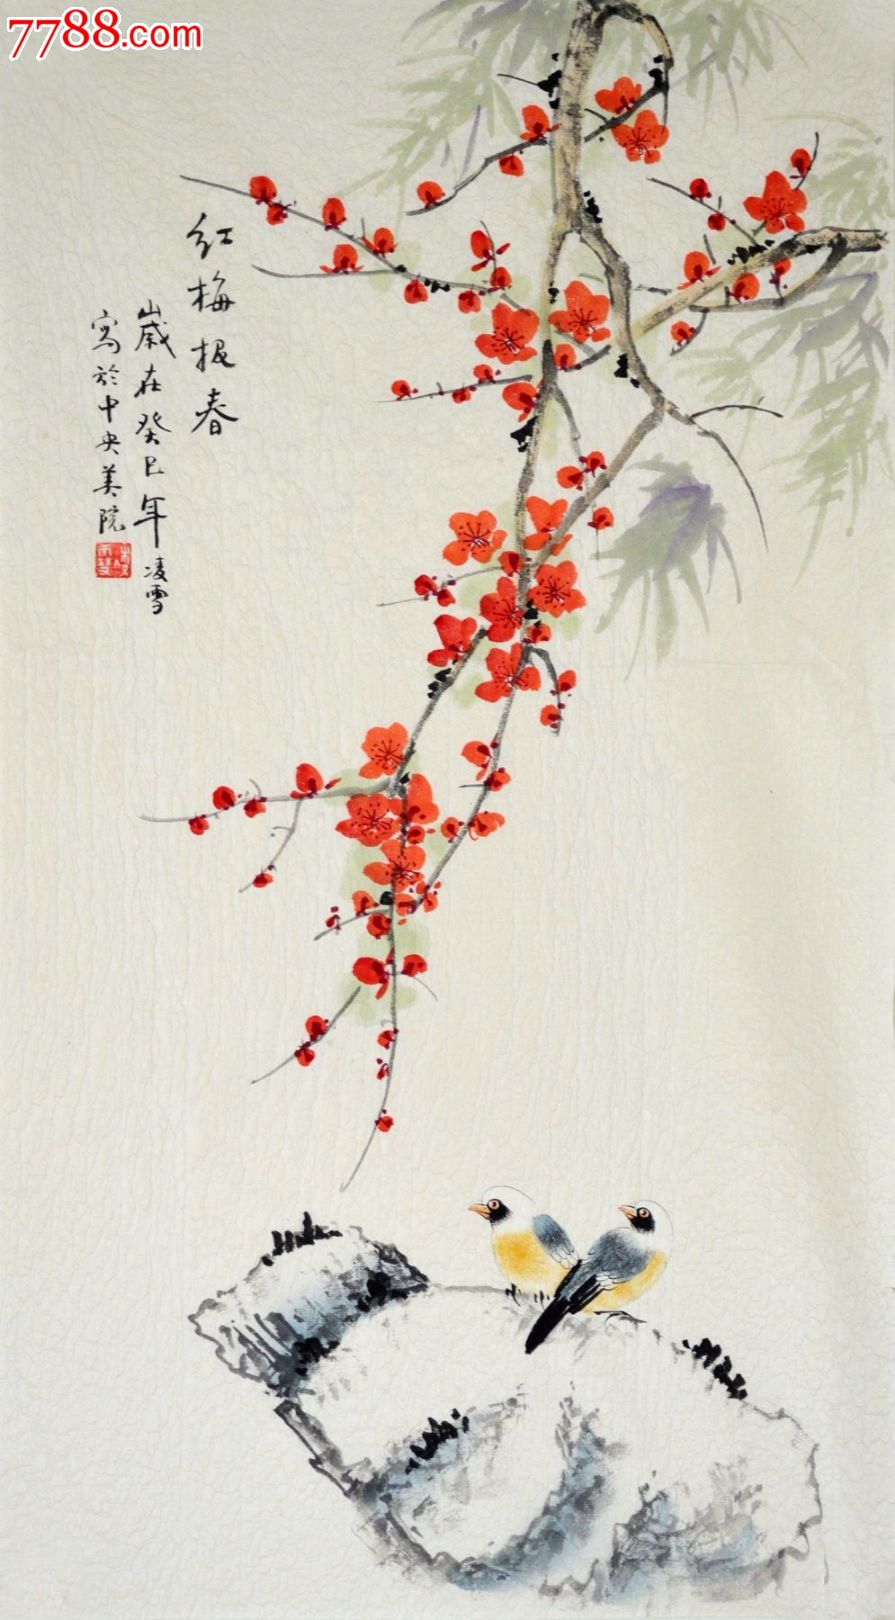 7788.com
红梅报春
岁在癸巳年凌雪
写於中央美院